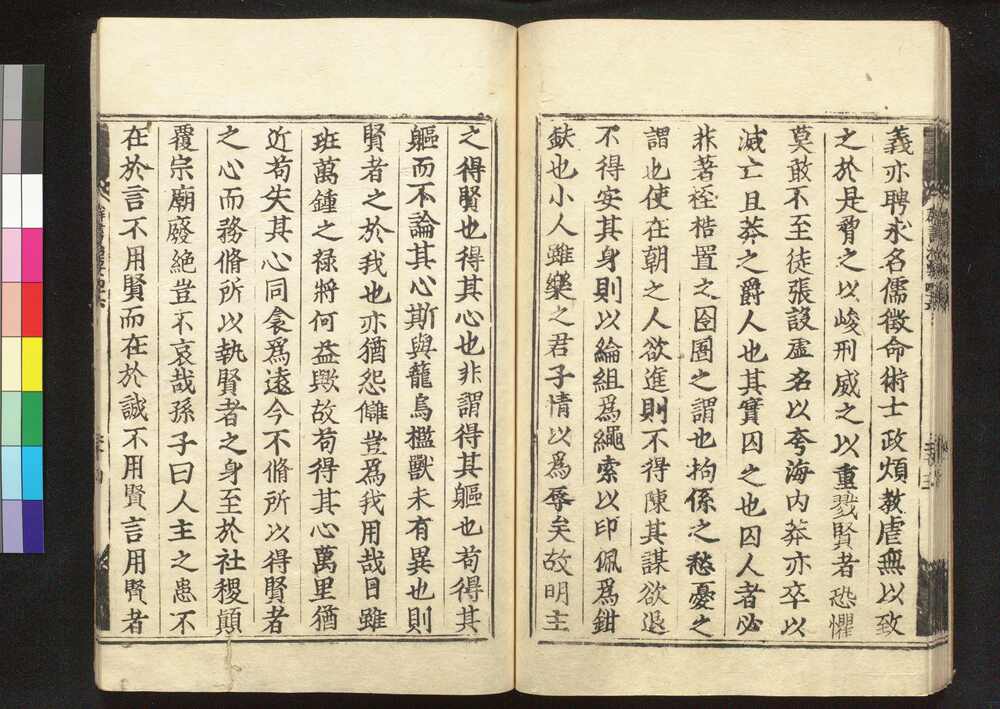 義亦聘求名儒徵命術士政煩教虐無以致
之於是脅之以峻刑威之以重戮賢者恐懼
莫敢不至徒張設虛名以夸海内莽亦卒以
滅亡且莽之爵人也其實囚之也囚人者必
非著桎梏置之囹圄之謂也拘係之愁憂之
謂也使在朝之人欲進則不得陳其謀欲退
不得安其身則以綸組爲繩索以印佩爲鉗
鈇也小人雖樂之君子情以爲辱矣故明主
之得賢也得其心也非謂得其軀也苟得其
軀而不論其心斯與籠鳥檻獸未有異也則
賢者之於我也亦猶怨讎豈爲我用哉日雖
班萬鍾之禄將何益歟故苟得其心萬里猶
近苟失其心同衾爲遠今不脩所以得賢者
之心而務脩所以執賢者之身至於社稷顛
覆宗廟廢絶豈不哀哉孫子曰人主之患不
在於言不用賢而在於誠不用賢言用賢者